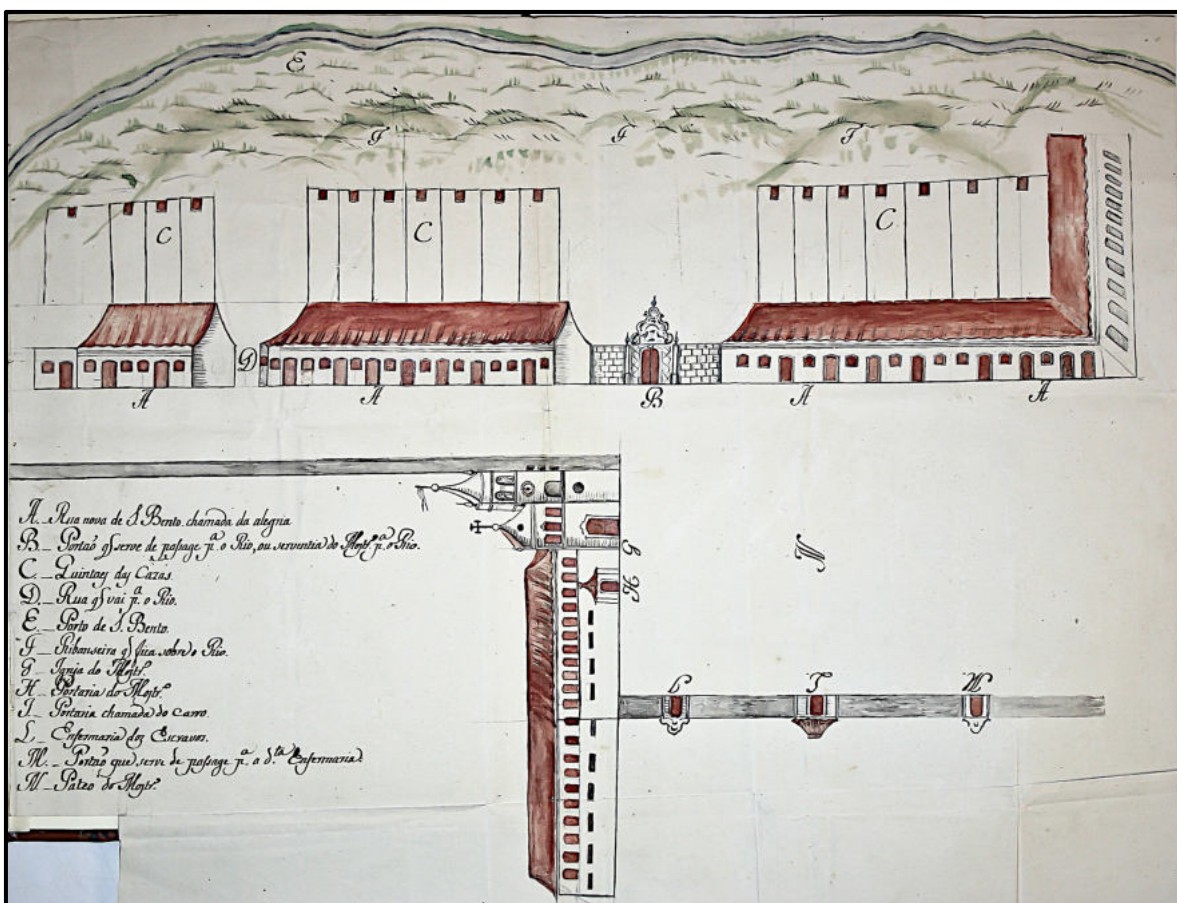 E
F
F
F
C
C
C
D
A
A
B
A
A
G
H
N
I
L
M
A. Rua nova de S. Bento. chamada da alegria
B. Portaõ q̃ serve de passage p.ª o Rio, ou serventia do Mostr.º p.ª o Rio.
C. Quintaes das Cazas.
D. Rua q̃ vai p.ª o Rio.
E. Porto de S. Bento.
F. Ribanseira q̃ fica sobre o Rio.
G. Igreja do Mostr.º
H. Portaria do Mostr.º
I. Portaria chamada do Carro.
L. Enfermaria dos Escravos.
M. Portaõ que serve de passage p.ª a d.ta Enfermaria.
N. Pateo do Mostr.º